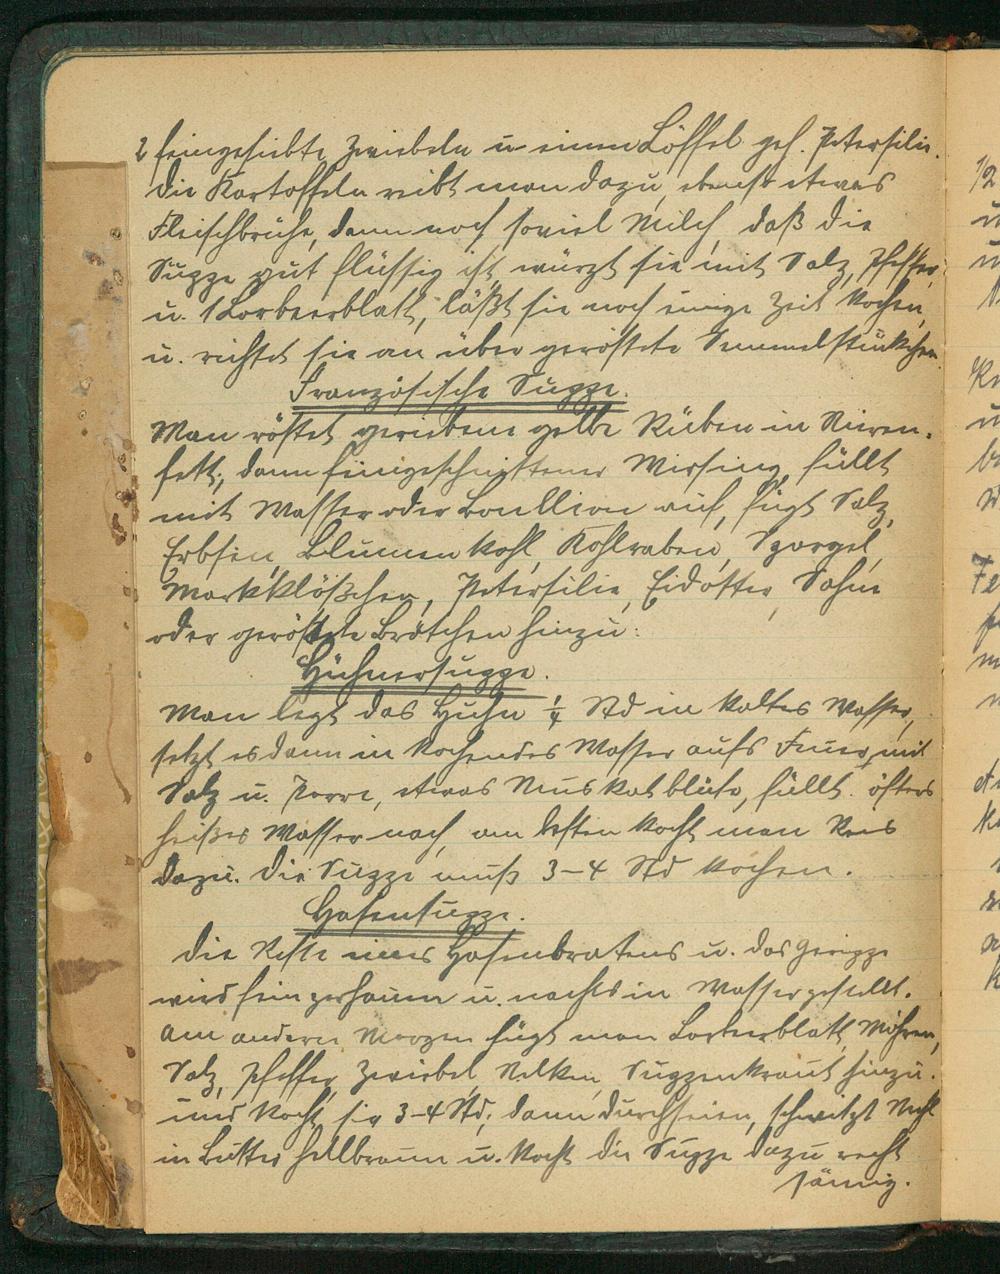 2 feingesiebte Zwiebeln u einen Löffel geh. Petersilie.
Die Kartoffeln reibt man dazu, ebenso etwas
Fleischbrühe, dann noch soviel Milch, daß die
Suppe gut flüssig ist, würzt sie mit Salz, Pfeffer,
u. 1 Lorbeerblatt, läßt sie noch einige Zeit kochen,
u. richtet sie an über geröstete Semmelstückchen.
Französische Suppe.
Man röstet geriebene gelbe Rüben in Nieren-
fett, dann feingeschnittener Wirsing, füllt
mit Wasser oder Boullion auf, fügt Salz,
Erbsen, Blumenkohl, Kohlraben, Spargel,
Markklößchen, Petersilie, Eidotter, Sahne
oder geröstete Brötchen hinzu.
Hühnersuppe.
Man legt das Huhn 1/4 Std in kaltes Wasser,
setzt es dann in kochendes Wasser aufs Feuer, mit
Salz u. Porre, etwas Muskatblüte, füllt öfters
heißes Wasser nach, am besten kocht man Reis
dazu. Die Suppe muß 3-4 Std kochen.
Hasensuppe.
Die Reste eines Hasenbratens u. das Gerippe
wird fein zerhauen u. nachts in Wasser gestellt.
Am andern Morgen fügt man Lorbeerblatt, Möhren,
Salz, Pfeffer, Zwiebel, Nelken, Suppenkraut hinzu.
und kocht sie 3-4 Std, dann durchseien, schwitzt Mehl
in Butter hellbraun u. kocht die Suppe dazu recht
sämig.
1/2